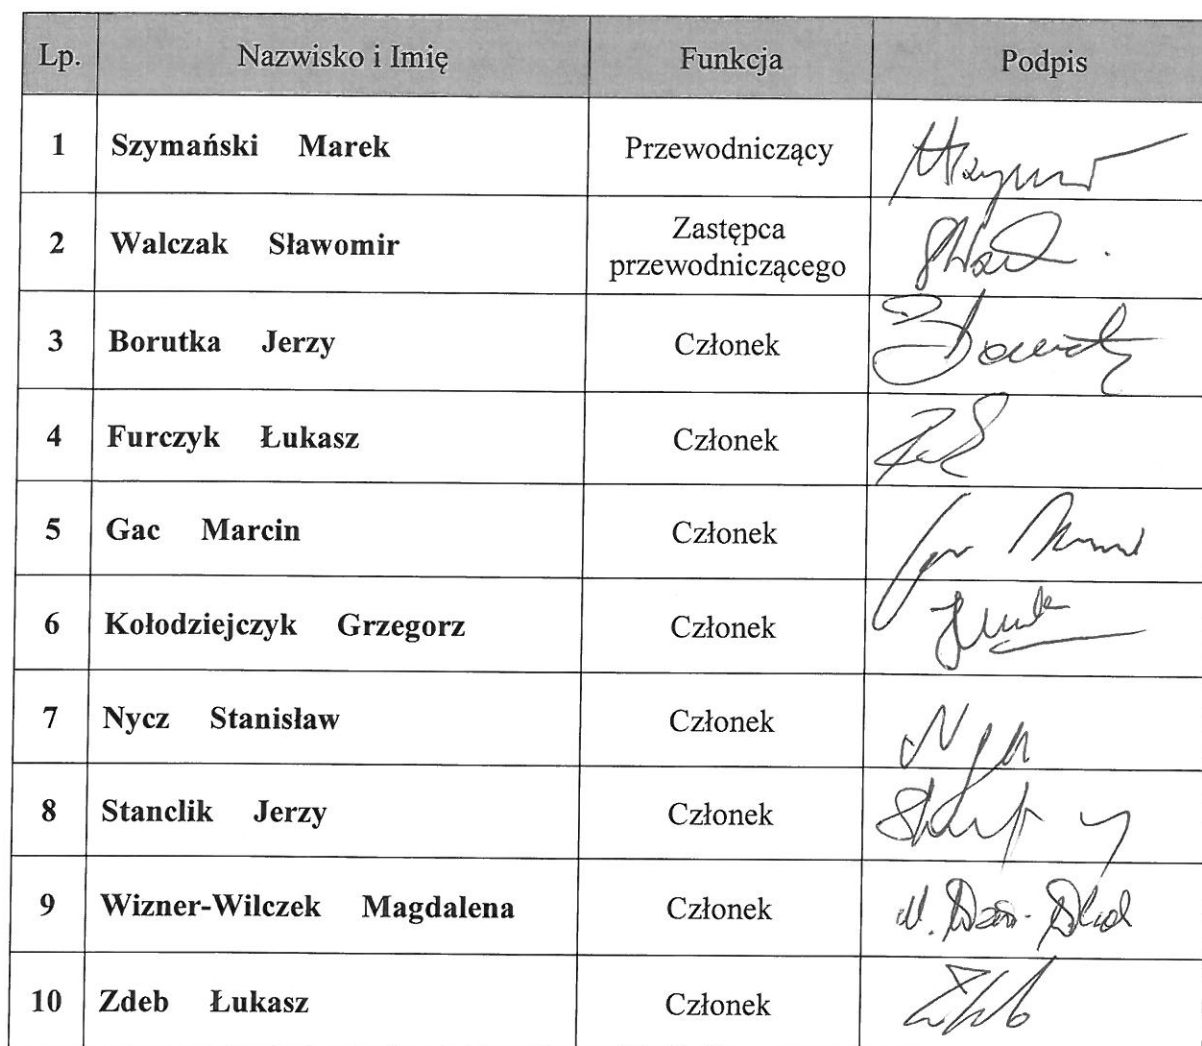 Lp. Nazwisko i Imię Funkcja Podpis
1 Szymański Marek Przewodniczący
2 Walczak Sławomir Zastępca
przewodniczącego
3 Borutka Jerzy Członek
4 Furczyk Łukasz Członek
5 Gac Marcin Członek
6 Kołodziejczyk Grzegorz Członek
7 Nycz Stanisław Członek
8 Stanclik Jerzy Członek
9 Wizner-Wilczek Magdalena Członek
10 Zdeb Łukasz Członek